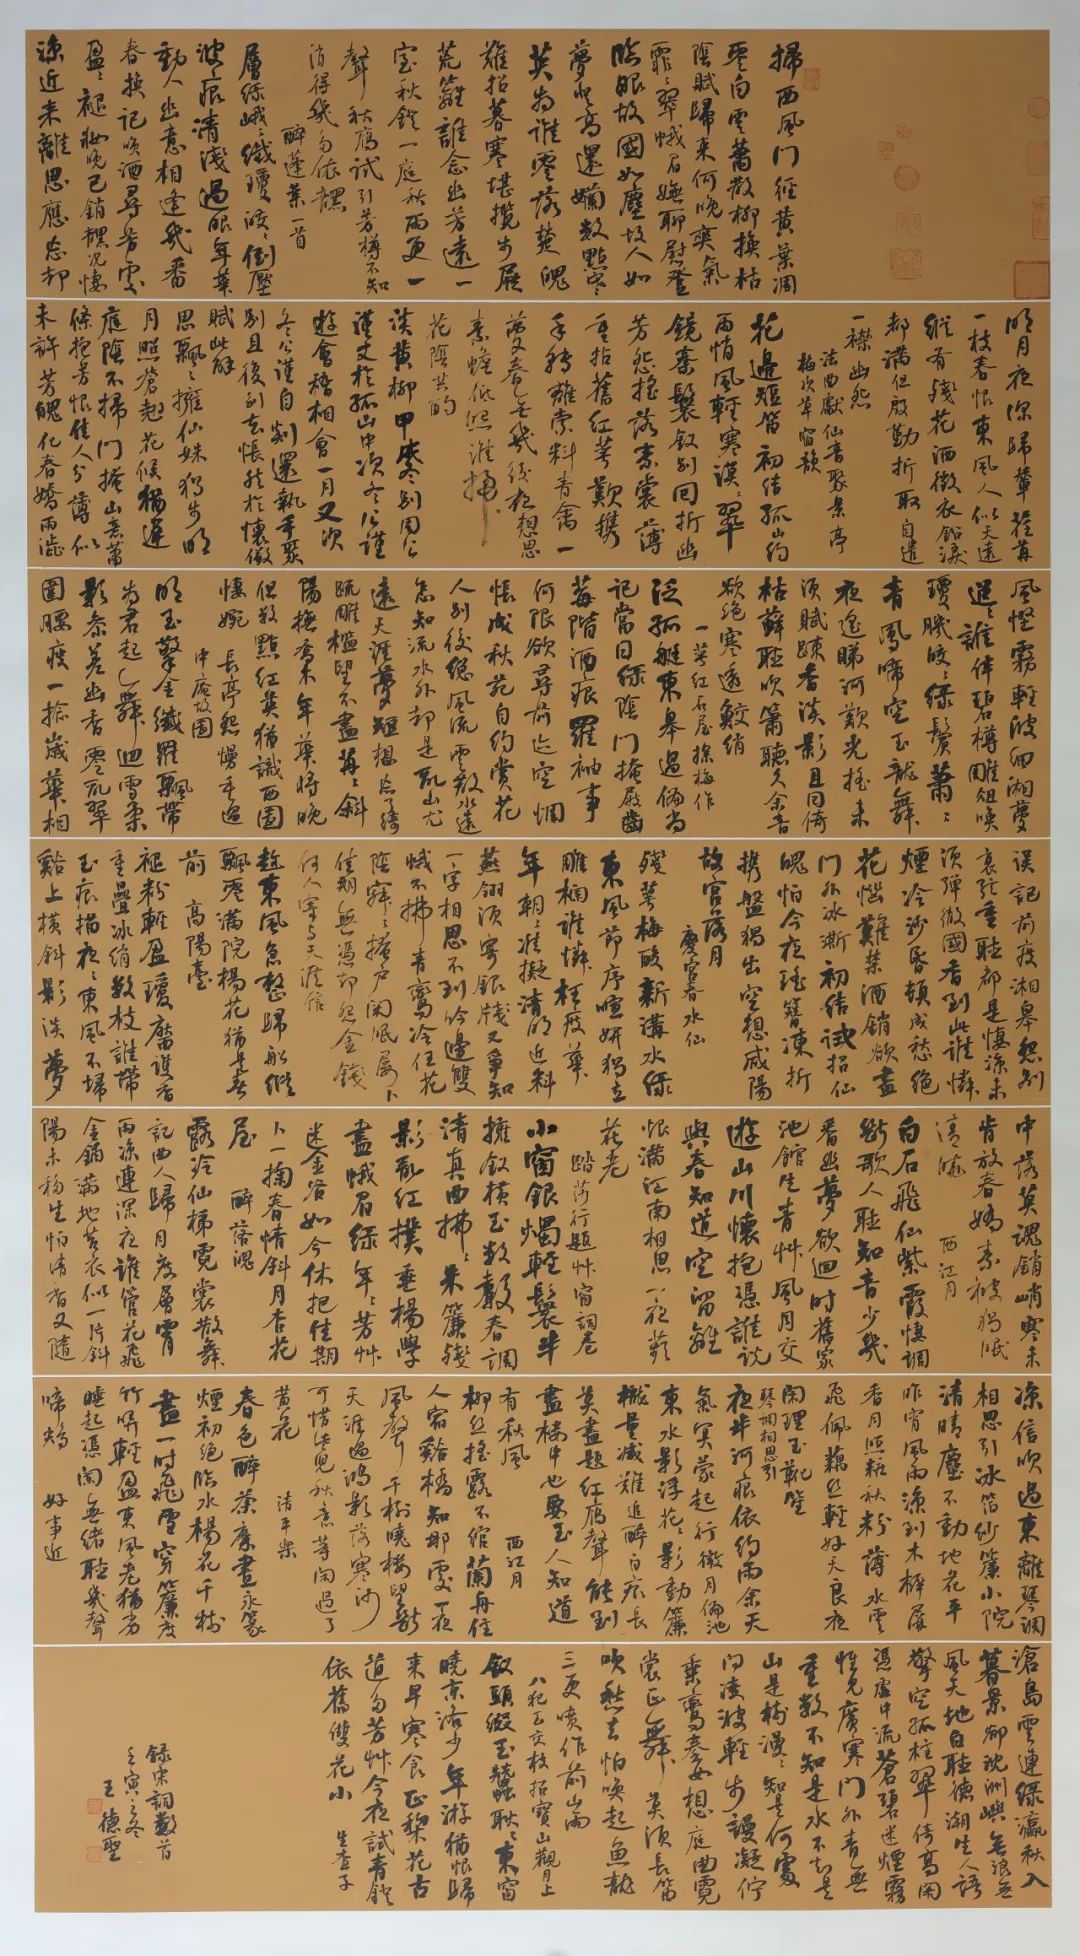 掃西風門徑黄葉凋
零白雲蕭散柳換枯
陰賦歸來何晚爽氣
霏霏翠蛾眉嫵聊慰登
臨眼故國如塵故人如
夢登高還嬾數點寒
英為誰零落楚魄
難招暮寒堪攬步屧
荒籬誰念幽芳遠一
室秋鐙一庭秋雨更一
聲秋雁試引芳樽不知
消得幾多依黯
醉蓬萊一首
層綠峨峨纖瓊皎皎倒壓
波痕清淺過眼年華
動人幽意相逢幾番
春換記喚酒尋芳處
盈盈褪妝晚已銷黯況淒
涼近來離思應忘卻
明月夜深歸輦荏苒
一枝春恨東風人似天遠
縱有殘花洒徵衣鉛淚
都滿但殷勤折取自遣
一襟幽怨
法曲獻仙音聚景亭
梅次草窗韻
花邊短笛初結孤山約
雨悄風輕寒漠漠翠
鏡秦鬟釵別同折幽
芳怨搖落素裳薄
重拈舊紅萼歎攜
手轉離索料青禽一
夢春無幾後夜相思
素蟾低照誰掃
花陰共酌
淡黃柳甲戌冬別周公
謹丈於孤山中次冬公謹
遊會稽相會一月又次
冬公謹自剡還執手聚
別且復別去悵然於懷儆
賦此解
思飄飄擁仙姝獨步明
月照蒼翹花候猶遲
庭陰不掃門掩山意蕭
條抱芳恨佳人分薄似
未許芳魄化春嬌雨澀
風慳霧輕波細湘夢
迢迢誰伴碧樽雕俎喚
瓊肌皎皎綠鬟蕭蕭
青鳳啼空玉龍舞
夜遙睇河漢光搖未
須賦疏香淡影且同倚
枯蘚聽吹簫聽久余音
欲絕寒透鮫綃
一萼紅石屋探梅作
泛孤艇東皋過徧尚
記當日綠陰門掩屐齒
莓階酒痕羅袖事
何限欲尋前迹空惆
悵成秋苑自約賞花
人別後總風流雲散水遠
怎知流水外卻是亂山尤
遠天涯夢短想忘了綺
疏雕檻望不盡苒苒斜
陽撫喬木年華將晚
但數點紅英猶識西園
淒婉 長亭怨慢重過
中庵故園
明玉擎金纖羅飄帶
為君起舞迴雪柔
影參差幽香零亂翠
圍腰瘦一捻歲華相
誤記前度湘皋怨別
哀弦重聽都是淒涼未
須彈徹國香到此誰憐
煙冷沙昏頓成愁絕
花惱難禁酒銷欲盡
門外冰澌初結試招仙
魄怕今夜瑤簪凍折
攜盤獨出空想咸陽
故宮落月
慶宮春水仙
殘萼梅酸新溝水綠
東風節序暄妍獨立
雕欄誰憐枉度華
年朝朝準擬清明近料
燕翎須寄銀牋又爭知
一字相思不到吟邊雙
蛾不拂青鸞冷任花
陰寂寂掩戶閑眠屢卜
佳期無憑卻怨金錢
何人寄與天涯信
趁東風急整歸船縱
飄零滿院楊花猶是春
前 高陽臺
褪粉輕盈瓊靨護香
重疊冰綃數枝誰帶
玉痕描夜夜東風不掃
谿上橫斜影淡夢
中落莫魂銷峭寒未
肯放春嬌素被獨眠
清曉 西江月
白石飛仙紫霞淒調
斷歌人聽知音少幾
番幽夢欲迴時舊家
池館生青艸風月交
遊山川懷抱憑誰說
與春知道空留離
恨滿江南相思一夜蘋
花老
踏莎行題艸窗詞卷
小窗銀燭輕鬟半
擁釵橫玉數聲春調
清真曲拂拂朱簾殘
影亂紅撲垂楊學
畫蛾眉綠年年芳艸
迷金谷如今休把佳期
卜一掬春情斜月杏花
屋 醉落魄
露冷仙梯霓裳散舞
記曲人歸月度層霄
雨涼連深夜誰管花飛
金鋪滿地苔衣似一片斜
陽未移生怕清香又隨
涼信吹過東籬琴調
相思引冰笛紗簾小院
清晴塵不動地花平
昨宵風雨涼到木樨屏
香月照粧秋粉薄水雲
飛佩藕絲輕好天良夜
閑理玉靴笙
琴調相思引
夜半河痕依約雨余天
氣冥蒙起行微月徧池
東水影浮花花影動簾
櫳量減難追醉白恨長
莫盡題紅雁聲能到
畫樓中也要玉人知道
有秋風 西江月
柳絲搖露不綰蘭舟住
人宿谿橋知那處一夜
風聲千樹曉樓望斷
天涯過鴻影落寒沙
可惜見秋意等閑過了
黄花 清平樂
春色醉荼蘼晝永篆
煙初絕臨水楊花千樹
盡一時飛雪穿簾度
竹弄輕盈東風老猶劣
睡起憑闌無緒聽幾聲
啼鴂 好事近
滄島雲連綠瀛秋入
暮景卻沈洲嶼無浪無
風天地白聽得潮生人語
擎空孤柱翠倚高閣
憑虛中流蒼碧迷煙霧
惟見廣寒門外青無
重數不知是水不知是
山是樹漫漫知是何處
問凌波輕步謾凝佇
乘鸞秦女想庭曲霓
裳正舞莫須長笛
吹愁去怕喚起魚龍
三更噴作前山雨
八犯玉交枝招寶山觀月上
釵頭綴玉蟲耿耿東窗
曉京洛少年游猶恨歸
來早寒食正梨花古
道多芳艸今夜試青鐙
依舊雙花小
生查子
錄宋詞數首
壬寅之冬
王德聖